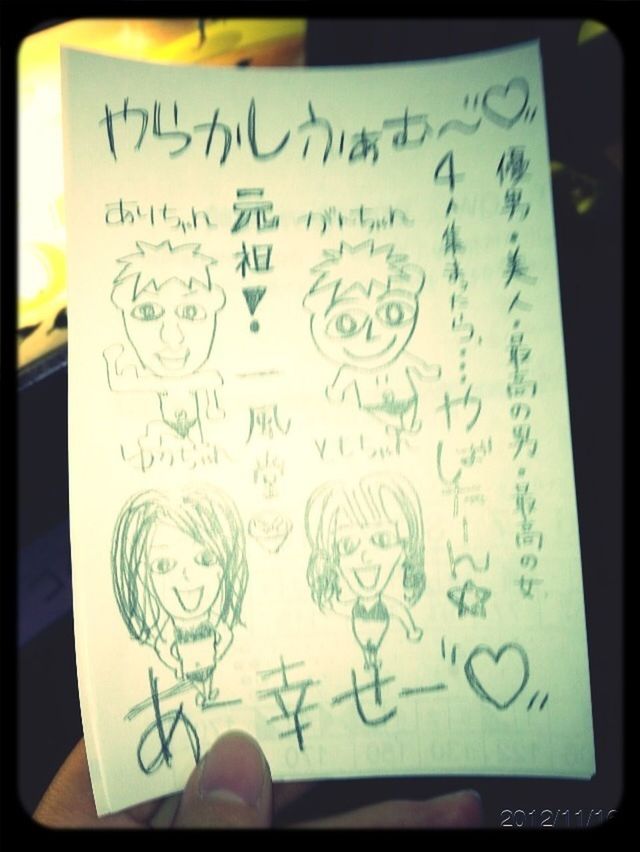 やらかしふぁむ〜"♡"
優男・美人・最高の男・最高の女
4人集まったら…やばたーん☆
ありちゃん
元祖!
がんちゃん
一風堂
ゆうちゃん
よしちゃん
あー幸せー"♡"
2012/11/1